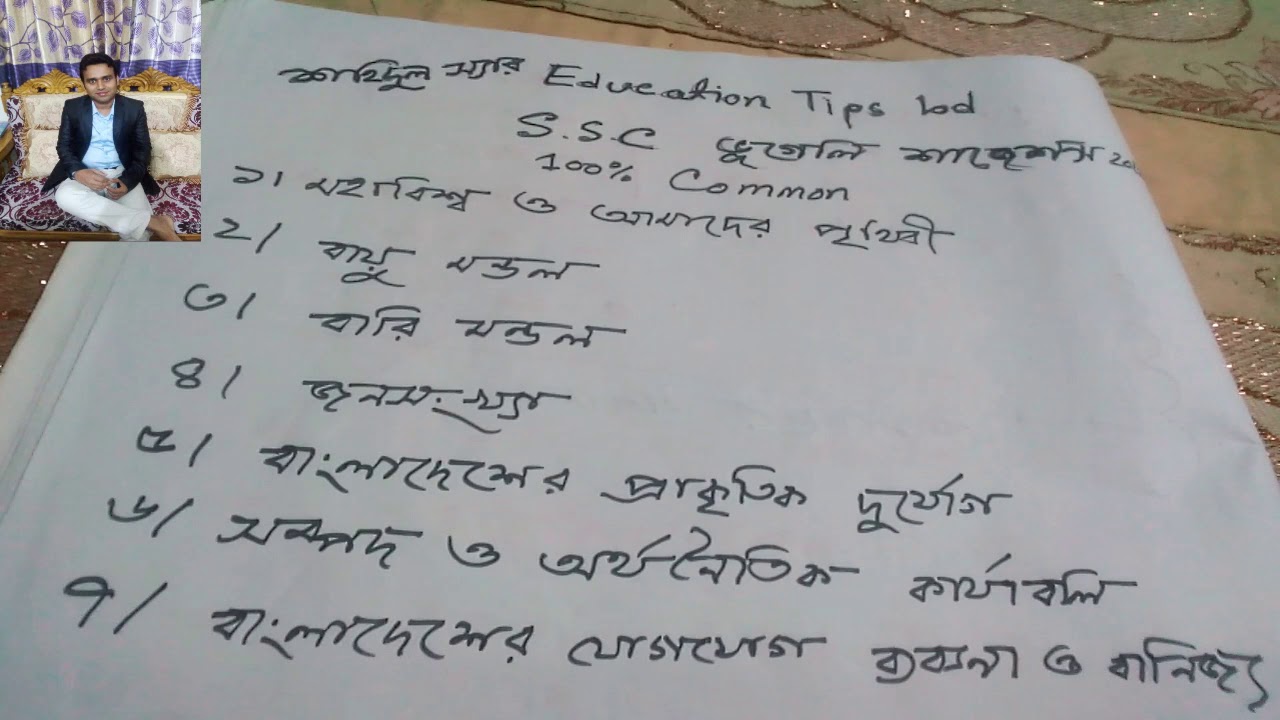 শাহিদুল স্যার Education Tips bd
S.S.C ভুগোল সাজেশন 20
100% Common
১। মহাবিশ্ব ও আমাদের পৃথিবী
২। বায়ু মন্ডল
৩। বারি মন্ডল
৪। জনসংখ্যা
৫। বাংলাদেশের প্রাকৃতিক দুর্যোগ
৬। সম্পদ ও অর্থনৈতিক কার্যাবলি
৭। বাংলাদেশের যোগাযোগ ব্যবস্থা ও বানিজ্য